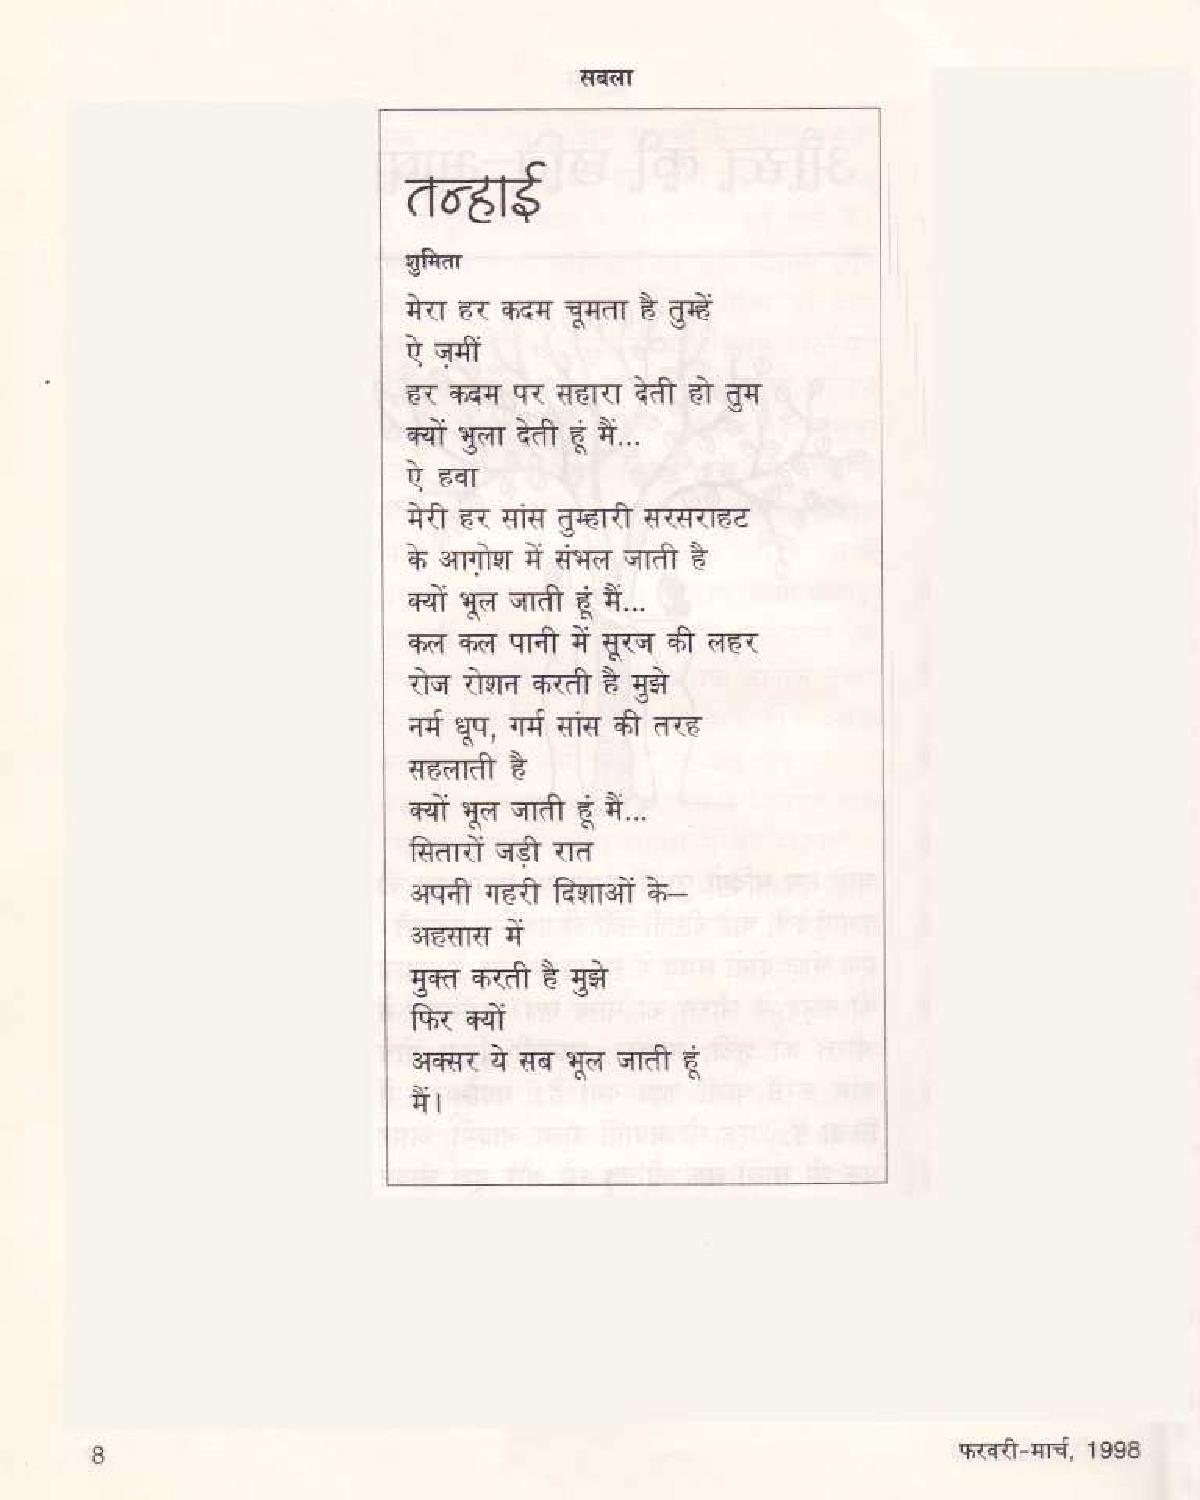 सबला
तन्हाई
शुमिता
मेरा हर कदम चूमता है तुम्हें
ऐ ज़मीं
हर कदम पर सहारा देती हो तुम
क्यों भुला देती हूं मैं...
ऐ हवा
मेरी हर सांस तुम्हारी सरसराहट
के आग़ोश में संभल जाती है
क्यों भूल जाती हूं मैं...
कल कल पानी में सूरज की लहर
रोज रोशन करती है मुझे
नर्म धूप, गर्म सांस की तरह
सहलाती है
क्यों भूल जाती हूं मैं...
सितारों जड़ी रात
अपनी गहरी दिशाओं के—
अहसास में
मुक्त करती है मुझे
फिर क्यों
अक्सर ये सब भूल जाती हूं
मैं।
8
फरवरी-मार्च, 1998